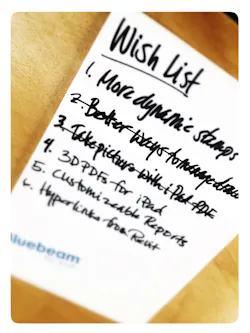 Wish List
1. More dynamic stamps
2. Better ways to manage
3. Take picture with iPad PDF
4. 3D PDFs for iPad
5. Customizeable Reports
6. Hyperlinks from Revit
bluebeam